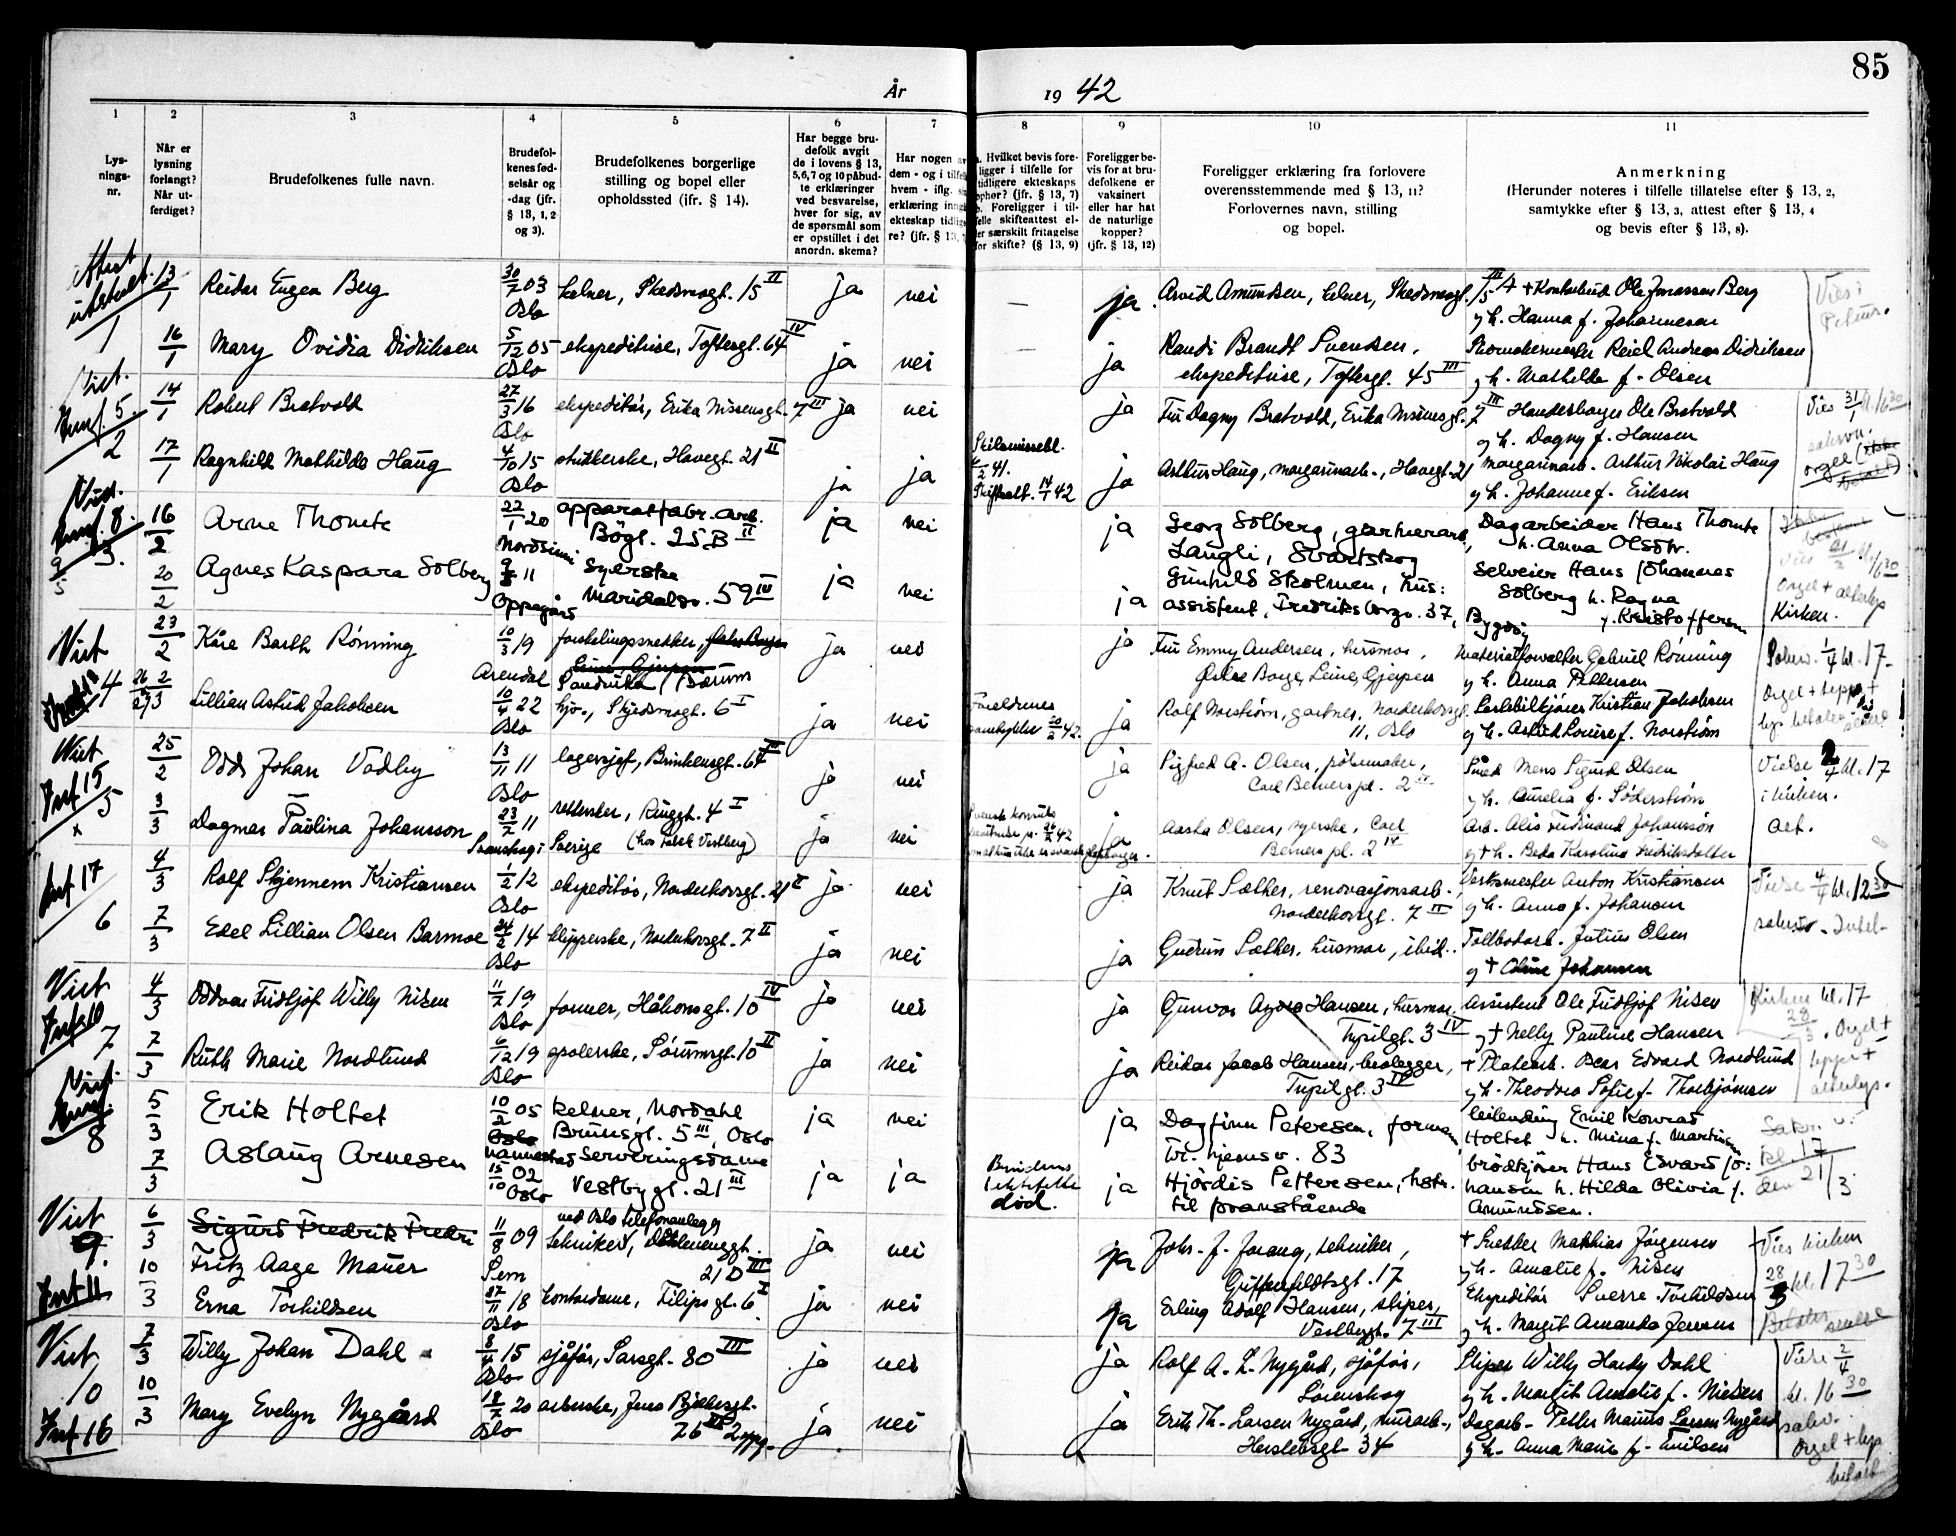 85
År 19 42
1 2 3 4 5 6 7 8 9 10 11
Lysningsnr.
Når er lysning forlangt? Når utferdiget?
Brudefolkenes fulle navn.
Brudefolkenes fødselsår og -dag (jfr. § 13, 1, 2 og 3).
Brudefolkenes borgerlige stilling og bopel eller opholdssted (jfr. § 14).
Har begge brudefolk avgit de i lovens § 13, 5, 6, 7 og 10 påbudte erklæringer ved besvarelse, hver for sig, av de spørsmål som er opstillet i det anordn. skema?
Har nogen av dem - og i tilfelle hvem - iflg. erklæring inngått ekteskap tidligere? (jfr. § 13,
Hvilket bevis foreligger i tilfelle for tidligere ekteskaps ophør? (jfr. § 13, 7)
b. Foreligger i tilfelle skifteattest eller særskilt fritagelse for skifte? (§ 13, 9)
Foreligger bevis for at brudefolkene er vaksinert eller har hat de naturlige kopper? (jfr. § 13, 12)
Foreligger erklæring fra forlovere overensstemmende med § 13, 11?
Forlovernes navn, stilling og bopel.
Anmerkning
(Herunder noteres i tilfelle tillatelse efter § 13, 2, samtykke efter § 13, 3, attest efter § 13, 4 og bevis efter § 13, 8).
Attest utstedt. 1
13/1 Reidar Eugen Berg 30/7 03 Oslo kelner, Skedsmogt. 15 II ja nei — ja Arvid Amundsen, kelner, Skedsmogt. 15 III
Ole Jonassen Berg
g. h. Hanna f. Johannesen
16/1 Mary Ovidia Didriksen 5/12 05 Oslo ekspeditrise, Toftesgt. 64 IV ja nei — ja Randi Brandt Svendsen, ekspeditrise, Toftesgt. 45 III
Skomakermester Reiel Andreas Didriksen
g. h. Mathilde f. Olsen
Viet. Innf. 5. 2
14/1 Robert Bratvold 27/3 16 Oslo ekspeditør, Erika Nissensgt. 7 III ja nei ja Fru Dagny Bratvold, Erika Nissensgt. 7 III
Ole Bratvold
g. h. Dagny f. Hansen
Vies 31/1 kl. 16 30
orgel
17/1 Ragnhild Mathilde Haug 4/10 15 Oslo Havegt. 21 II ja ja
Skifteatt. 14/1 42
ja Arthur Haug, margarinarb., Havegt. 21
margarinarb. Arthur Nikolai Haug
g. h. Johanne f. Eriksen
Viet. Innf. 8. 3. 9/5
16/2 Arne Thomte 22/1 20 Nordsinni apparatfabr. arb. Bøgt. 25 B II ja nei ja Georg Solberg, gartnerarb., Langli, Svartskog
Dagarbeider Hans Thomte
h. Anna Olsdtr.
20/2 Agnes Kaspara Solberg 11 Oppegård syerske Maridalsv. 59 IV ja nei ja Gunhild Skolmen, hus:
assistent, Fredriksborgv. 37, Bygdøy
selveier Hans Johannes
Solberg h. Ragna
f. Kristoffersen
Orgel + alterlys
Kirken.
Viet 4
23/2 Kåre Barth Rønning 10/3 19 Arendal forskalingssnekker,
Sandvika (Bærum ja nei ja Fru Emmy Andersen, husmor,
Østre Borge, Leine, Gjerpen
Materialforvalter Gabriel Rønning
g. h. Anna Pettersen
1/4 kl. 17
Lillian Astrid Jakobsen 10/4 22 Oslo hjv., Skjedsmogt. 6 I ja nei Foreldrenes samtykke 20/2 42. ja Rolf Norstrøm, gartner, Norderhovsgt. 11, Oslo
Kristian Jakobsen
g. h. Astrid Louise f. Norstrøm
Viet Innf 15 5
25/2 Odd Johan Vadby 13/11 11 Oslo lagersjef, Brinkensgt. 67 III ja nei ja Sigfred A. Olsen, pølsemaker,
Carl Berners pl. 2 IV
Smed Mons Sigurd Olsen
g. h. Aurelia f. Söderström
Vielse 2/4 kl. 17
i kirken.
3/3 Dagmar Paulina Johansson 23/7 11 Ringgt. 4 I
Sverige ja nei ja Aasta Olsen, syerske, Carl
Berners pl. 2 IV
Arb. Alis Ferdinand Johansson
g. + h. Beda Karolina Fredriksdotter
Innf 17 6
4/3 Rolf Skjennem Kristiansen 1/2 12 Oslo ekspeditør, Norderhovsgt. 21 I ja nei ja Knut Sæther, renovasjonsarb.
Norderhovsgt. 7 II
Verksmester Anton Kristiansen
g. h. Anna f. Johansen
Vielse 4/4 kl. 12 30
7/3 Edel Lillian Olsen Barmoe 24/2 14 Oslo klipperske, Norderhovsgt. 7 II ja nei ja Gudrun Sæther, husmor, ibid.
Tollbodarb. Julius Olsen
g. + Oline Johansen
Viet Innf 10 7
4/3 Oddvar Fridtjof Willy Nisen 11/7 19 Oslo former, Håkonsgt. 10 IV ja nei ja Gunvor Agnes Hansen, husmor.
Tyrilgt. 3 IV
Assistent Ole Fridtjof Nisen
g. + Nelly Pauline Hansen
Kirken kl. 17
28/3. Orgel +
7/3 Ruth Marie Nordlund 6/12 19 Oslo spolerske, Sørumsgt. 10 II ja nei ja Reidar Jacob Hansen, Tyrilgt. 3 IV
+ Platearb. Oscar Edvard Nordlund
g. h. Theodora Sofie f. Thorbjørnsen
Viet. Innf. 8
5/3 Erik Holtet 10/2 05 kelner, Nordahl
Brunsgt. 5 III, Oslo ja nei ja Dagfinn Petersen, formann,
Tr. hjemsv. 83
leilending Emil Konrad
Holtet h. Mina f. Martinsen
kl. 17
den 21/3
7/3 Aslaug Arnesen 15/10 02 Oslo serveringsdame
Vestbygt. 21 III ja ja død. ja Hjørdis Pettersen, hstr.
til foranstående
brødkjører Hans Edvard Jo:
hansen h. Hilda Olivia f.
Amundsen.
Viet 9. Innf 11
6/3 Sigurd Fredrik Fredri
Fritz Aage Mauer 11/8 09 Sem ved Oslo telefonanlegg
tekniker, 21 D III ja nei ja Johs. J. Jorang, tekniker,
Griffenfeldtsgt. 17
+ Snekker Mathias Jørgensen
g. h. Amalie f. Nisen
Vies kirken
28/3 kl. 17 30
10/3 Erna Torkildsen 27/11 18 Oslo kontordame, Filipsgt. 6 I ja nei ja Erling Adolf Hansen, sliper,
Vestbygt. 7 III
Ekspeditør Sverre Torkildsen
g. h. Margit Amanda Jensen
Viet 10 Innf 16
7/3 Willy Johan Dahl 8/4 15 Oslo sjåfør, Sarsgt. 80 III ja nei ja Rolf A. L. Nygård, sjåfør,
Lørenskog
Sliper Willy Hardy Dahl
g. h. Margit Amalie f. Nielsen
Vielse 2/4
kl. 16 30
10/3 Mary Evelyn Nygård 18/7 20 Oslo arberske, Jens Bjelkesgt.
76 II 2 oppg. ja nei ja Erik Th. Larsen Nygård, murarb.,
Herslebsgt 34
Dagarb. Petter Mauritz Larsen Nygård
g. h. Anna Marie f. Emilsen
Orgel + lys
betalt